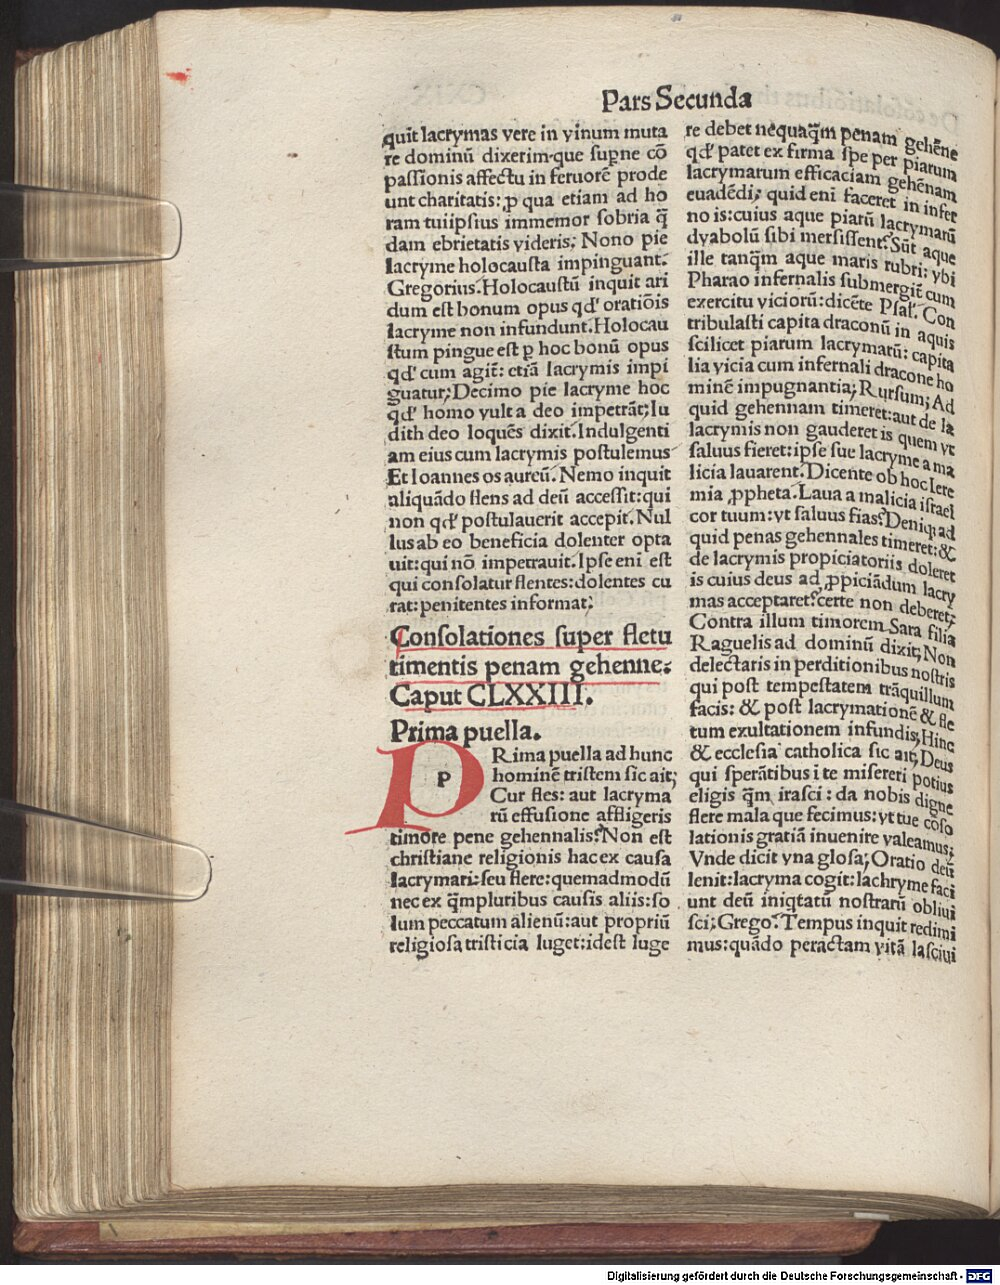 Pars Secunda
quit lacrymas vere in vinum muta
re dominū dixerim·que sup̄ne cō
passionis affectu in feruorē prode
unt charitatis: ꝓ qua etiam ad ho
ram tuiipsius immemor sobria q̄
dam ebrietatis videris; Nono pie
lacryme holocausta impinguant.
Gregorius. Holocaustū inquit ari
dum est bonum opus qd' oratiōis
lacryme non infundunt. Holocau
stum pingue est ꝑ hoc bonū opus
qd' cum agit̄: etiā lacrymis impi
guatur; Decimo pie lacryme hoc
qd' homo vult a deo impetrāt; Iu
dith deo loquēs dixit. Indulgenti
am eius cum lacrymis postulemus
Et Ioannes os aureū. Nemo inquit
aliquādo flens ad deū accessit: qui
non qd' postulauerit accepit. Nul
lus ab eo beneficia dolenter opta
uit: qui nō impetrauit. Ipse eni est
qui consolatur flentes: dolentes cu
rat: penitentes informat;
Consolationes super fletu
timentis penam gehenne.
Caput CLXXIII.
Prima puella.
P
p
Rima puella ad hunc
hominē tristem sic ait;
Cur fles: aut lacryma
rū effusione affligeris
timore pene gehennalis? Non est
christiane religionis hac ex causa
lacrymari: seu flere: quemadmodū
nec ex q̄mpluribus causis aliis: so
lum peccatum alienū: aut propriū
religiosa tristicia luget: idest luge
re debet nequaq̄m penam gehēne
qd' patet ex firma spe per piarum
lacrymarum efficaciam gehēnam
euadēdi; quid eni faceret in infer
no is: cuius aque piarū lacrymarū
dyabolū sibi mersissent? Sūt aque
ille tanq̄m aque maris rubri: ybi
Pharao infernalis submergit̄ cum
exercitu viciorū: dicēte Psal'. Con
tribulasti capita draconū in aquis
scilicet piarum lacrymarū: capita
lia vicia cum infernali dracone ho
minē impugnantia; Rursum; Ad
quid gehennam timeret: aut de la
lacrymis non gauderet is quem vt
saluus fieret: ipse sue lacryme a ma
licia lauarent. Dicente ob hoc Iere
mia ꝓpheta. Laua a malicia israel
cor tuum: vt saluus fias? Deniqꝫ ad
quid penas gehennales timeret: &
de lacrymis propiciatoriis doleret
is cuius deus ad ꝓpiciādum lacry
mas acceptaret? certe non deberet;
Contra illum timorem Sara filia
Raguelis ad dominū dixit; Non
delectaris in perditionibus nostris
qui post tempestatem trāquillum
facis: & post lacrymationē & fle
tum exultationem infundis; Hinc
& ecclesia catholica sic ait; Deus
qui sperātibus i te misereri potius
eligis q̄m irasci: da nobis digne
flere mala que fecimus: vt tue cōso
lationis gratiā inuenire valeamus;
Vnde dicit vna glosa; Oratio deū
lenit: lacryma cogit: lachryme faci
unt deū iniqtatū nostrarū obliui
sci; Grego. Tempus inquit redimi
mus: quādo peractam vitā lasciui
Digitalisierung gefördert durch die Deutsche Forschungsgemeinschaft - DFG